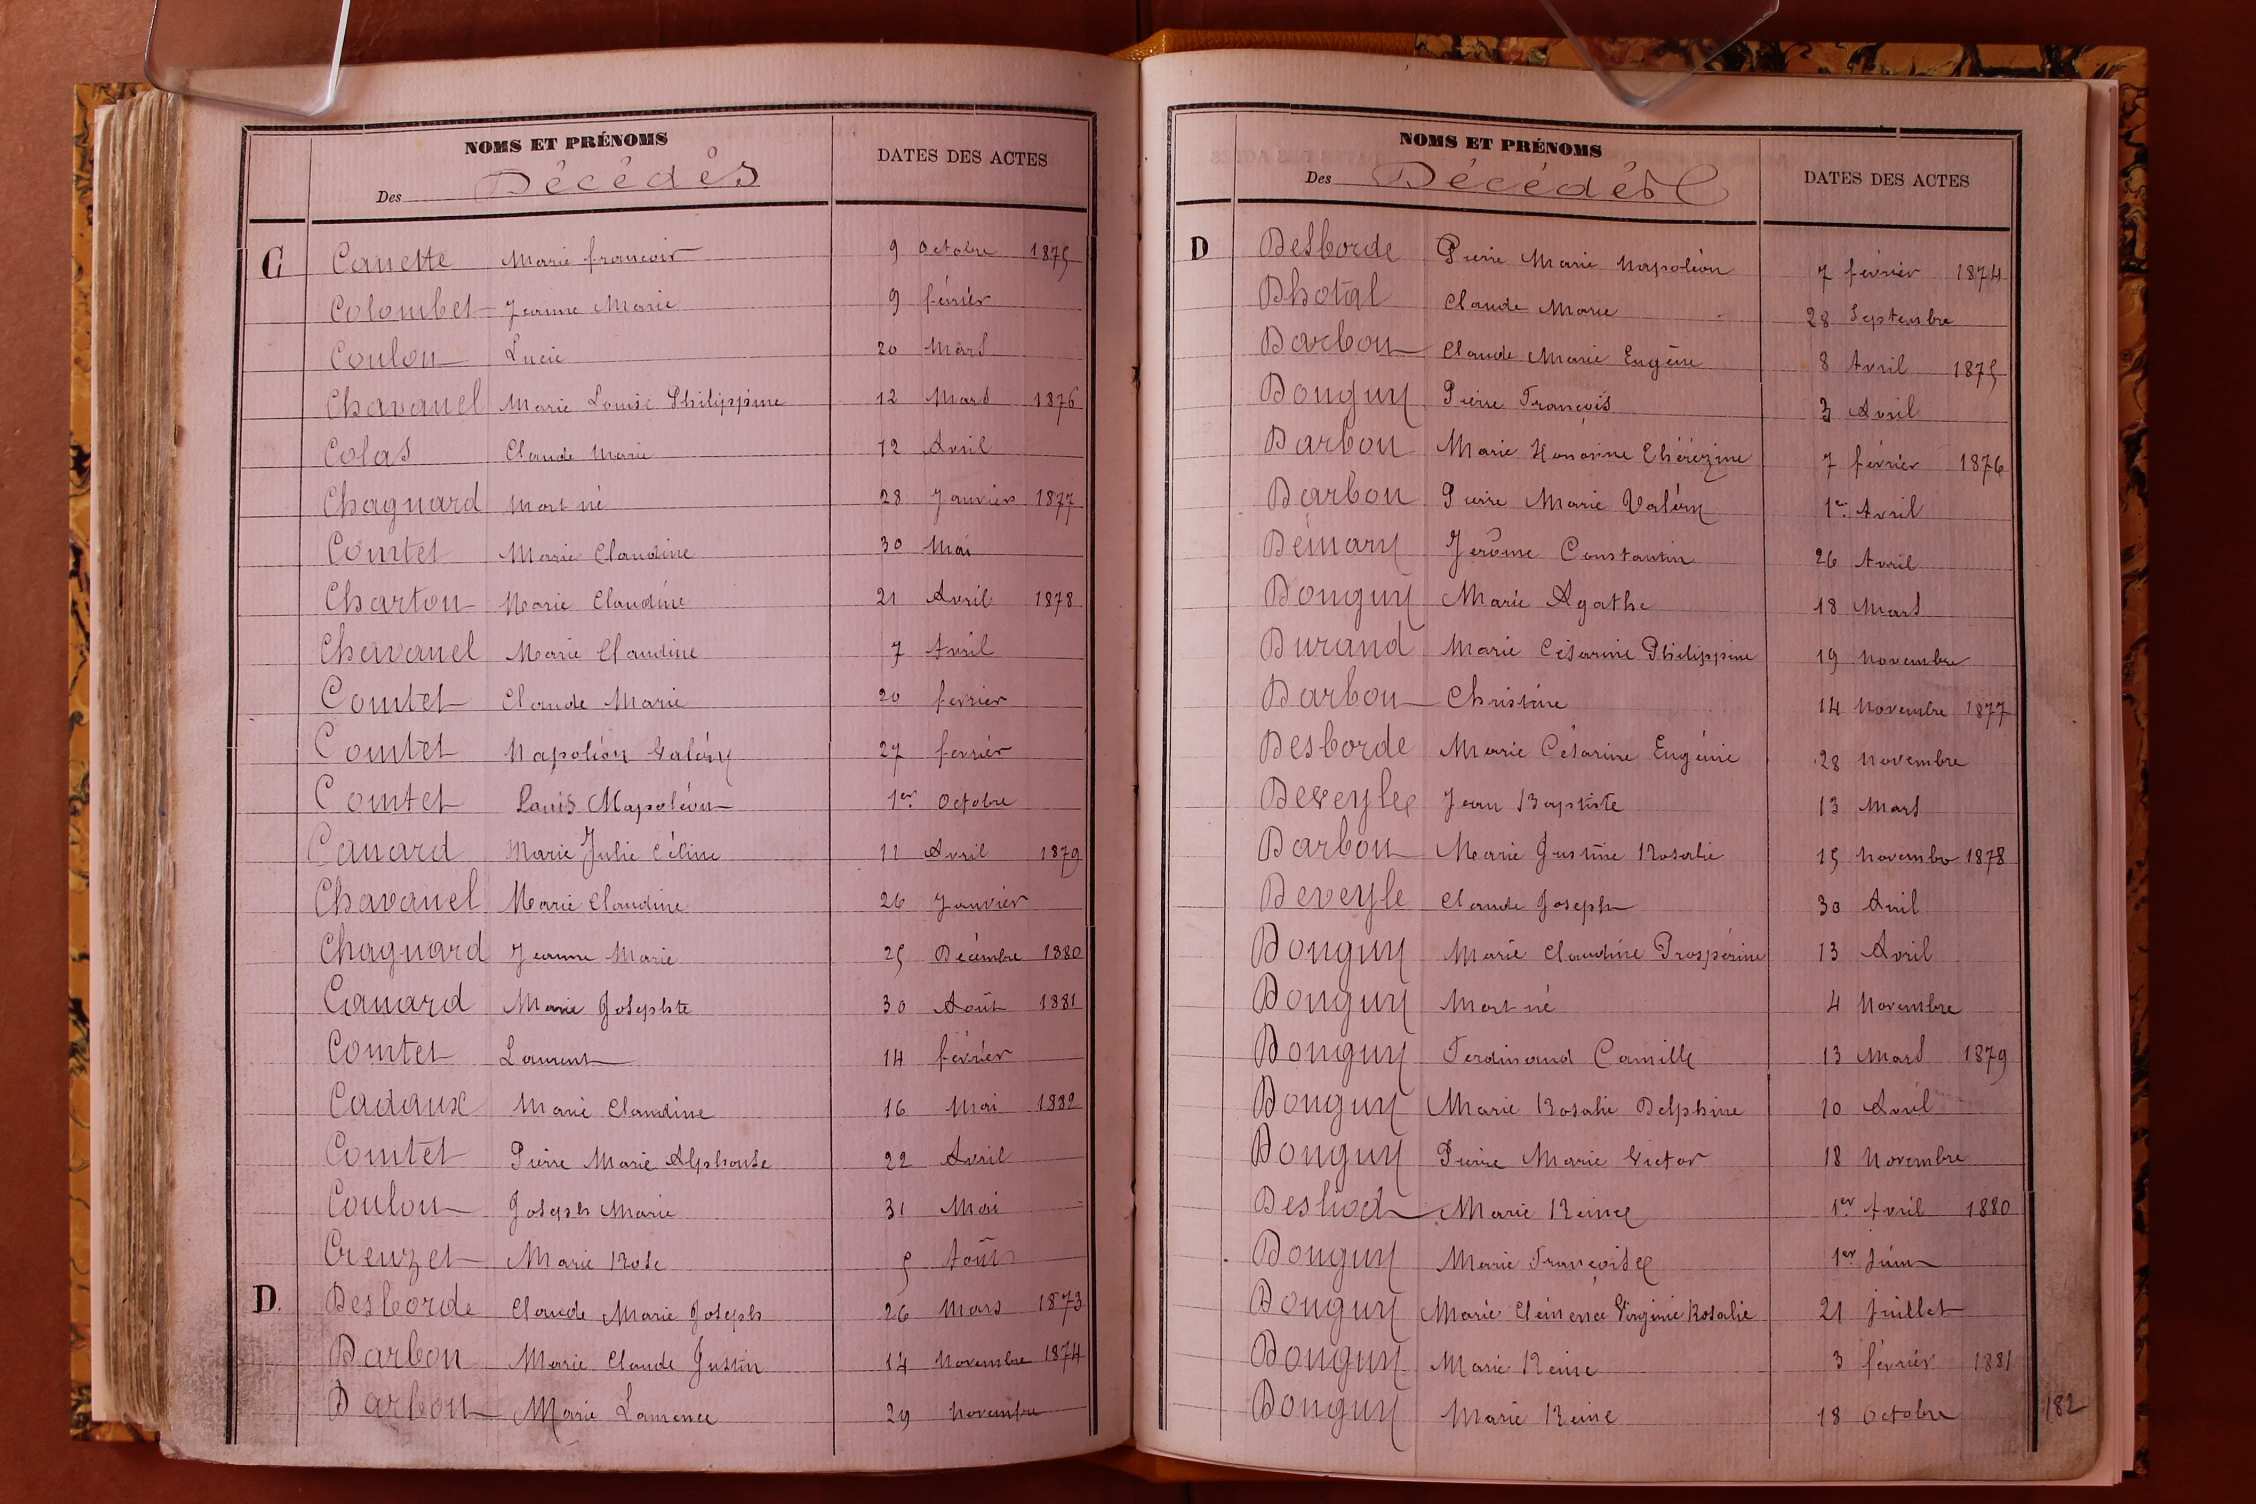 NOMS ET PRÉNOMS
DATES DES ACTES
Des Décédés
C Canette Marie francois 9 Octobre 1875
Colombet Jeanne Marie 9 février
Coulon Lucie 20 Mars
Chavanel Marie Louise Philippine 12 Mars 1876
Colas Claude Marie 12 Avril
Chagnard Mort né 28 Janvier 1877
Comtet Marie Claudine 30 Mai
Charton Marie Claudine 21 Avril 1878
Chavanel Marie Claudine 7 Avril
Comtet Claude Marie 20 fevrier
Comtet Napoléon Valéry 27 fevrier
Comtet Louis Napoléon 1er Octobre
Canard Marie Julie Céline 11 Avril 1879
Chavanel Marie Claudine 26 Janvier
Chagnard Jeanne Marie 25 Décembre 1880
Canard Marie Josephte 30 Août 1881
Comtet Laurent 14 février
Cadaux Marie Claudine 16 Mai 1882
Comtet Pierre Marie Alphonse 22 Avril
Coulon Joseph Marie 31 Mai
Creuzet Marie Rose 5 Août
D. Desborde Claude Marie Joseph 26 Mars 1873
Darbon Marie Claude Justin 14 Novembre 1874
Darbon Marie Laurence 29 Novembre
NOMS ET PRÉNOMS
DATES DES ACTES
Des Décédés
D Desborde Pierre Marie Napoléon 7 février 1874
Dhotal Claude Marie 28 Septembre
Darbon Claude Marie Eugène 8 Avril 1875
Donguy Pierre François 3 Avril
Darbon Marie Honorine Thérézine 7 février 1876
Darbon Pierre Marie Valéry 1er Avril
Démary Jerôme Constantin 26 Avril
Donguy Marie Agathe 18 Mars
Durand Marie Césarine Philippine 19 Novembre
Darbon Christine 14 Novembre 1877
Desborde Marie Césarine Eugénie 28 Novembre
Deveyle Jean Baptiste 13 Mars
Darbon Marie Justine Rosalie 15 Novembre 1878
Deveyle Claude Joseph 30 Avril
Donguy Marie Claudine Prospérine 13 Avril
Donguy Mort né 4 Novembre
Donguy Ferdinand Camille 13 Mars 1879
Donguy Marie Rosalie Delphine 10 Avril
Donguy Pierre Marie Victor 18 Novembre
Marie Reine 1er Avril 1880
Donguy Marie Françoise 1er Juin
Donguy Marie Clémence Virginie Rosalie 21 Juillet
Donguy Marie Reine 3 février 1881
Donguy Marie Reine 18 Octobre
182